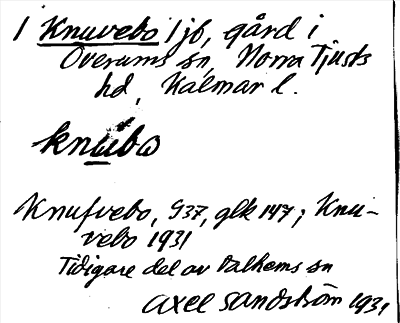 1 Knuvebo 1 jb, gård i
Överums sn, Norra Tjusts
hd, Kalmar l.
knubo
Knufvebo, G37, glk 147; Knu-
vebo 1931
Tidigare del av Dalhems sn
Axel Sandström 1931